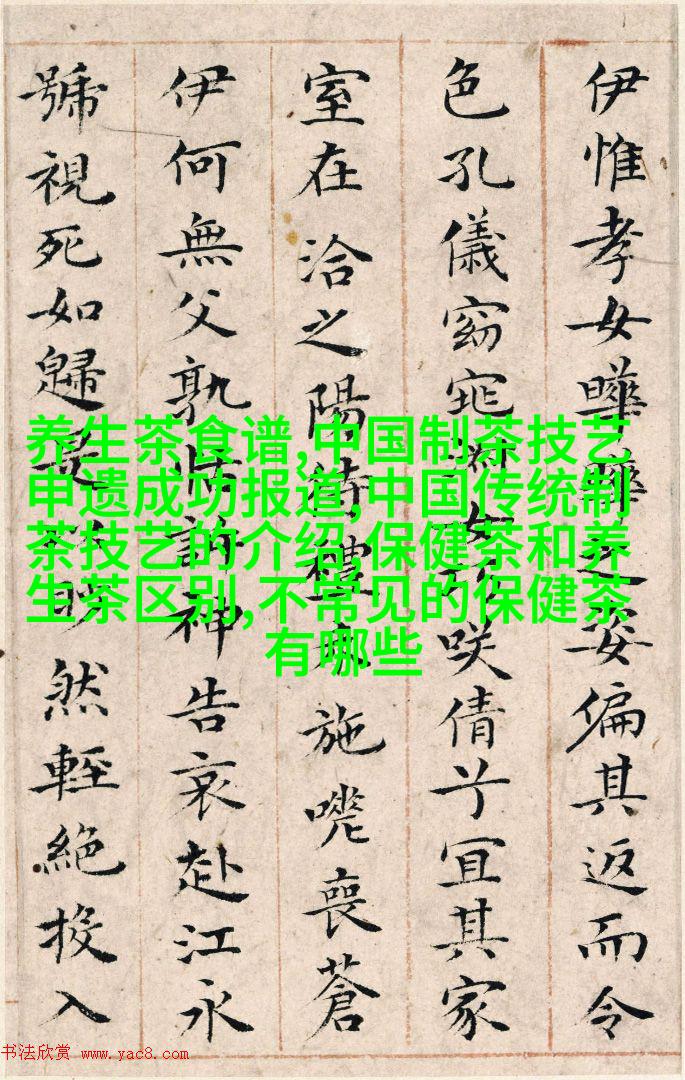 伊惟孝女曄曄之姿偏其返而令
色孔儀窈窕淑女巧咲倩兮宜其家
室在洽之陽待禮未施嗟喪蒼
伊何無父孰怙訴神告哀赴江永
號視死如歸是以眇然輕絕投入
养生茶食谱,中国制茶技艺
申遗成功报道,中国传统制
茶技艺的介绍,保健茶和养
生茶区别,不常见的保健茶
有哪些
书法欣赏 www.yac8.com